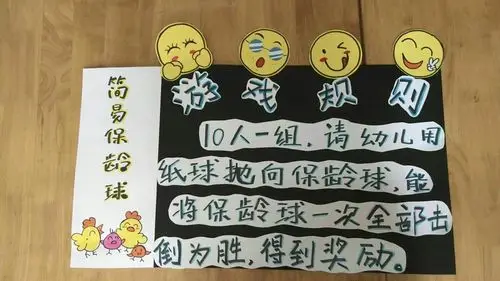 简易保龄球
游戏规则
10人一组,请幼儿用
纸球抛向保龄球,能
将保龄球一次全部击
倒为胜,得到奖励。